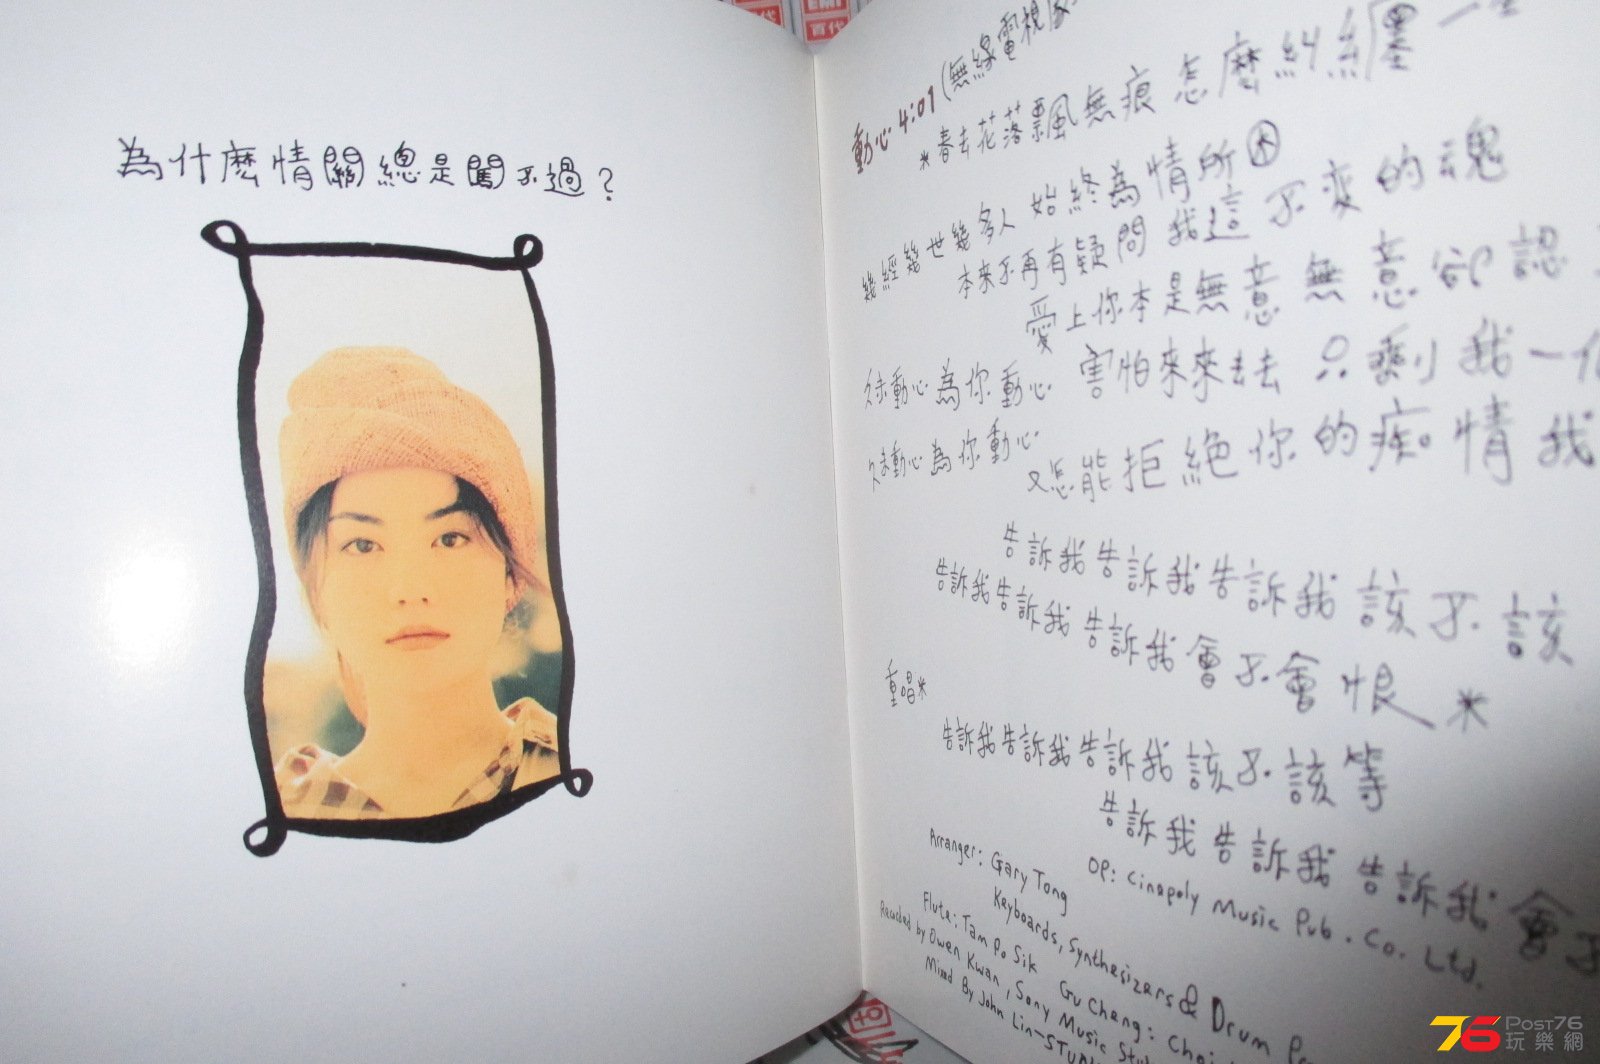 為什麼情關總是闖不過？
動心 4:01 (無線電視
*春去花落飄無痕 怎麼糾纏一
幾經幾世幾多人 始終為情所困
本來不再有疑問 我這不變的魂
愛上你本是無意 無意卻認
動心為你動心 害怕來來去去 只剩我一
動心為你動心 又怎能拒絕你的痴情 我
告訴我告訴我告訴我 該不該
告訴我告訴我告訴我會不會恨*
重唱*
告訴我告訴我告訴我該不該等
告訴我告訴我告訴我會不
OP: Cinepoly Music Pub. Co. Ltd.
Arranger: Gary Tong
Keyboards, Synthesizers & Drum
Flute: Tam Po Sik Gu Cheng: Choi
Recorded by Owen Kwan, Sony Music
Mixed By John Lin-
百代
76 POST76
玩樂網